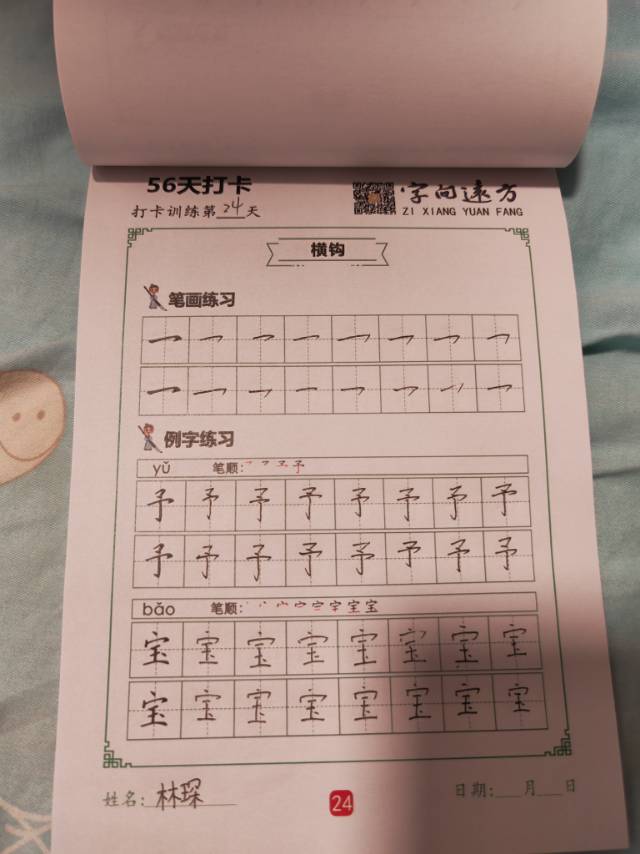 56天打卡
字向远方
打卡训练第24天
ZI XIANG YUAN FANG
横钩
笔画练习
例字练习
yǔ 笔顺:
予 予 予 予 予 予 予 予
予 予 予 予 予 予 予 予
bǎo 笔顺:
宝 宝 宝 宝 宝 宝 宝 宝
宝 宝 宝 宝 宝 宝 宝 宝
姓名: 林琛 24 日期:___月___日